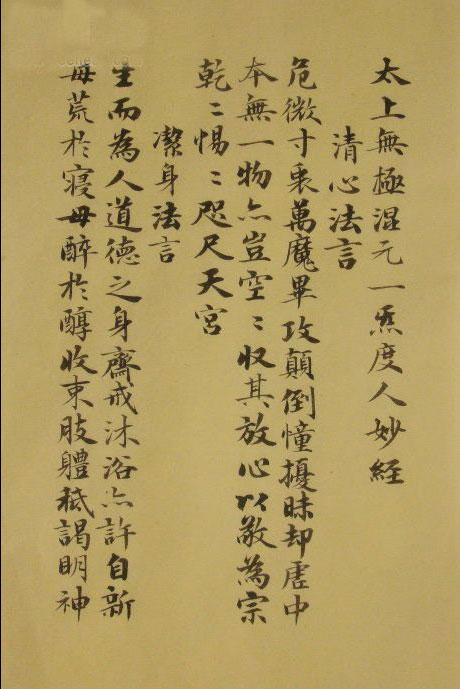 太上無極混元一炁度人妙經
清心法言
危微寸衷萬魔畢攻顛倒憧擾昧却虛中
本無一物亦豈空〻収其放心以敬為宗
乾〻惕〻咫尺天宮
潔身法言
生而為人道德之身齋戒沐浴亦許自新
毋荒於寢毋醉於醇收束肢體秪謁明神